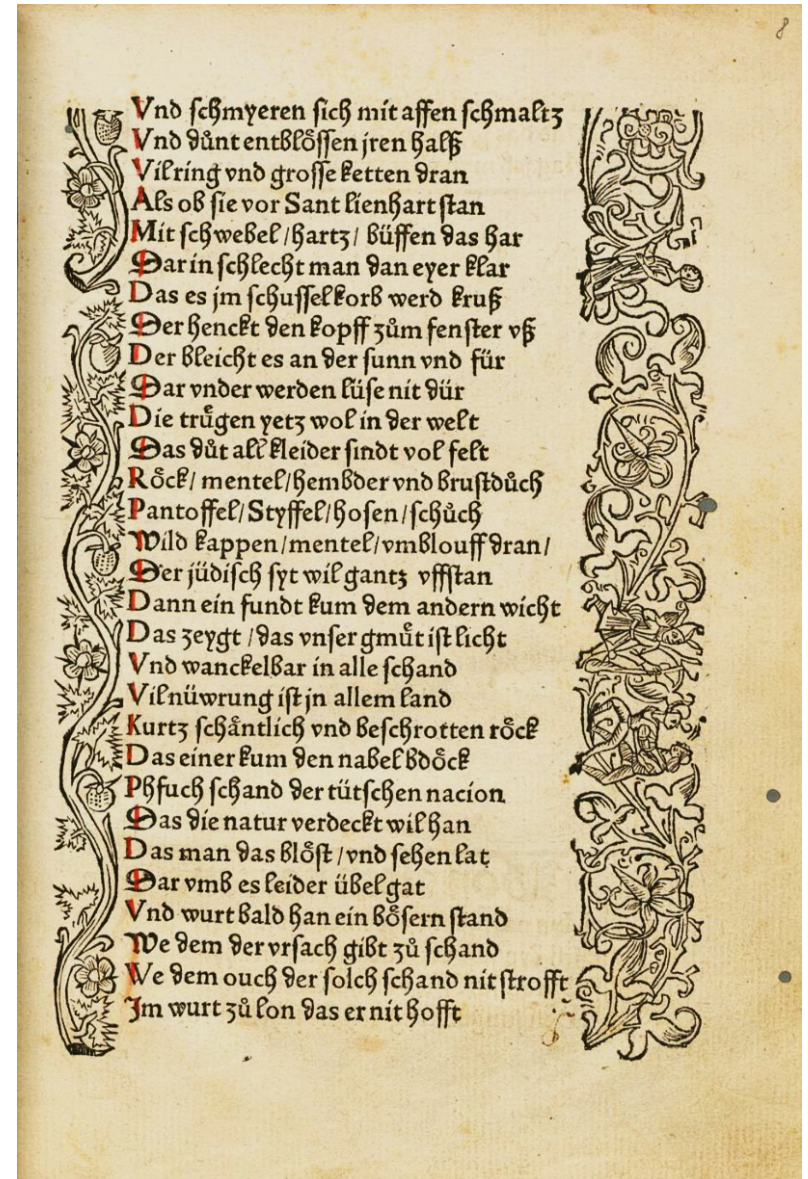 8
Vnd schmyeren sich mit affen schmaltz
Vnd důnt entblössen jren halß
Vil ring vnd grosse ketten dran
Als ob sie vor Sant Lienhart stan
Mit schwebel / hartz / büffen das har
Dar in schlecht man dan eyer klar
Das es jm schusselkorb werd kruß
Der henckt den kopff zům fenster vß
Der bleicht es an der sunn vnd für
Dar vnder werden lüse nit dür
Die trügen yetz wol in der welt
Das důt all kleider sindt vol felt
Röck / mentel / hembder vnd brustdůch
Pantoffel / Styffel / hosen / schůch
Wild kappen / mentel / vmblouff dran /
Der jüdisch syt wil gantz vffstan
Dann ein fundt kum dem andern wicht
Das zeygt / das vnser gmůt ist licht
Vnd wanckelbar in alle schand
Vil nüwrung ist jn allem land
Kurtz schäntlich vnd beschrotten röck
Das einer kum den nabel bdöck
Phfuch schand der tütschen nacion
Das die natur verdeckt wil han
Das man das blöst / vnd sehen lat
Dar vmb es leider übel gat
Vnd wurt bald han ein bösern stand
We dem der vrsach gibt zů schand
We dem ouch der solch schand nit strofft
Im wurt zů lon das er nit hofft